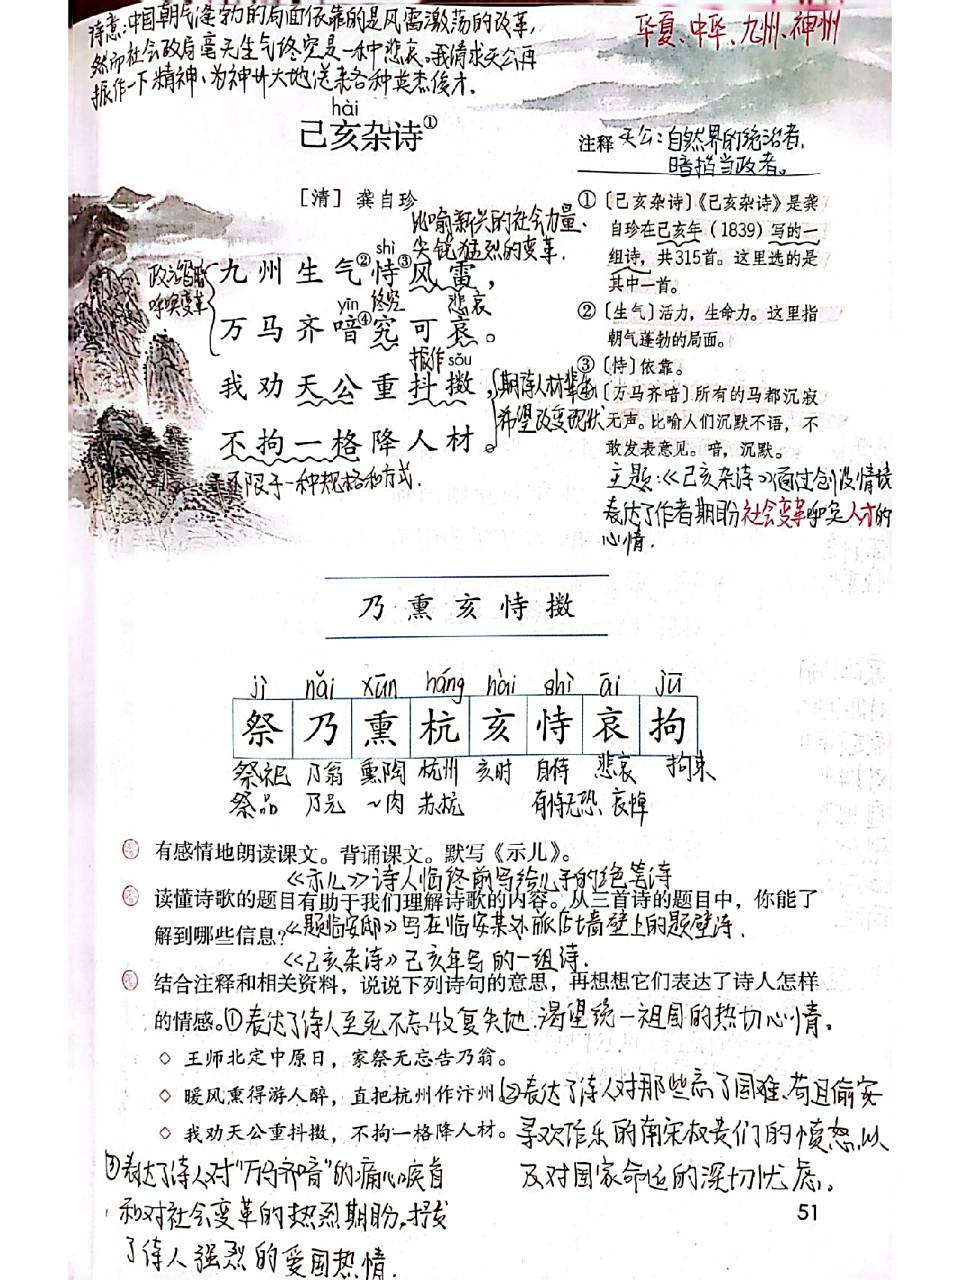 诗意:中国朝气蓬勃的局面依靠的是风雷激荡的改革,
然而社会政局毫无生气终究是一种悲哀。我请求天公再
振作一下精神、为神州大地送来各种英杰俊才.
华夏、中华、九州、神州
hài
己亥杂诗①
[清] 龚自珍
注释 天公:自然界的统治者,
暗指当政者。
比喻新兴的社会力量、
尖锐猛烈的变革.
shì
九州生气②恃③风雷,
政治昏暗
呼唤变革
yīn 终究 悲哀
万马齐喑④究可哀。
振作 sǒu
我劝天公重抖擞,
不拘一格降人材。
期待人材辈出
希望改变现状
不限于一种规格和方式.
①〔己亥杂诗〕《己亥杂诗》是龚
自珍在己亥年(1839)写的一
组诗,共315首。这里选的是
其中一首。
②〔生气〕活力,生命力。这里指
朝气蓬勃的局面。
③〔恃〕依靠。
〔万马齐喑〕所有的马都沉寂
无声。比喻人们沉默不语,不
敢发表意见。喑,沉默。
主题:《己亥杂诗》通过创设情境
表达了作者期盼社会变革呼唤人才的
心情.
乃 熏 亥 恃 擞
jì nǎi xūn háng hài shì āi jū
祭 乃 熏 杭 亥 恃 哀 拘
祭祀 乃翁 熏陶 杭州 亥时 自恃 悲哀 拘束
祭品 乃兄 ~肉 苏杭 有恃无恐 哀悼
有感情地朗读课文。背诵课文。默写《示儿》。
《示儿》诗人临终前写给儿子的绝笔诗
读懂诗歌的题目有助于我们理解诗歌的内容。从三首诗的题目中,你能了
解到哪些信息?《题临安邸》写在临安某处旅店墙壁上的题壁诗.
《己亥杂诗》己亥年写的一组诗.
结合注释和相关资料,说说下列诗句的意思,再想想它们表达了诗人怎样
的情感。①表达了诗人至死不忘收复失地、渴望统一祖国的热切心情。
◇ 王师北定中原日,家祭无忘告乃翁。
◇ 暖风熏得游人醉,直把杭州作汴州
②表达了诗人对那些忘了国难、苟且偷安
◇ 我劝天公重抖擞,不拘一格降人材。
寻欢作乐的南宋权贵们的愤怒以
及对国家命运的深切忧虑。
③表达了诗人对"万马齐喑"的痛心疾首
和对社会变革的热烈期盼,抒发
了诗人强烈的爱国热情.
51